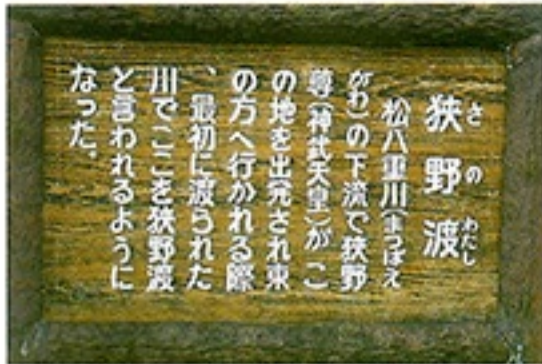 狭野渡
さのわたし
松八重川(まつばえ
がわ)の下流で狭野
尊(神武天皇)がこ
の地を出発され東
の方へ行かれる際
、最初に渡られた
川でここを狭野渡
と言われるように
なった。